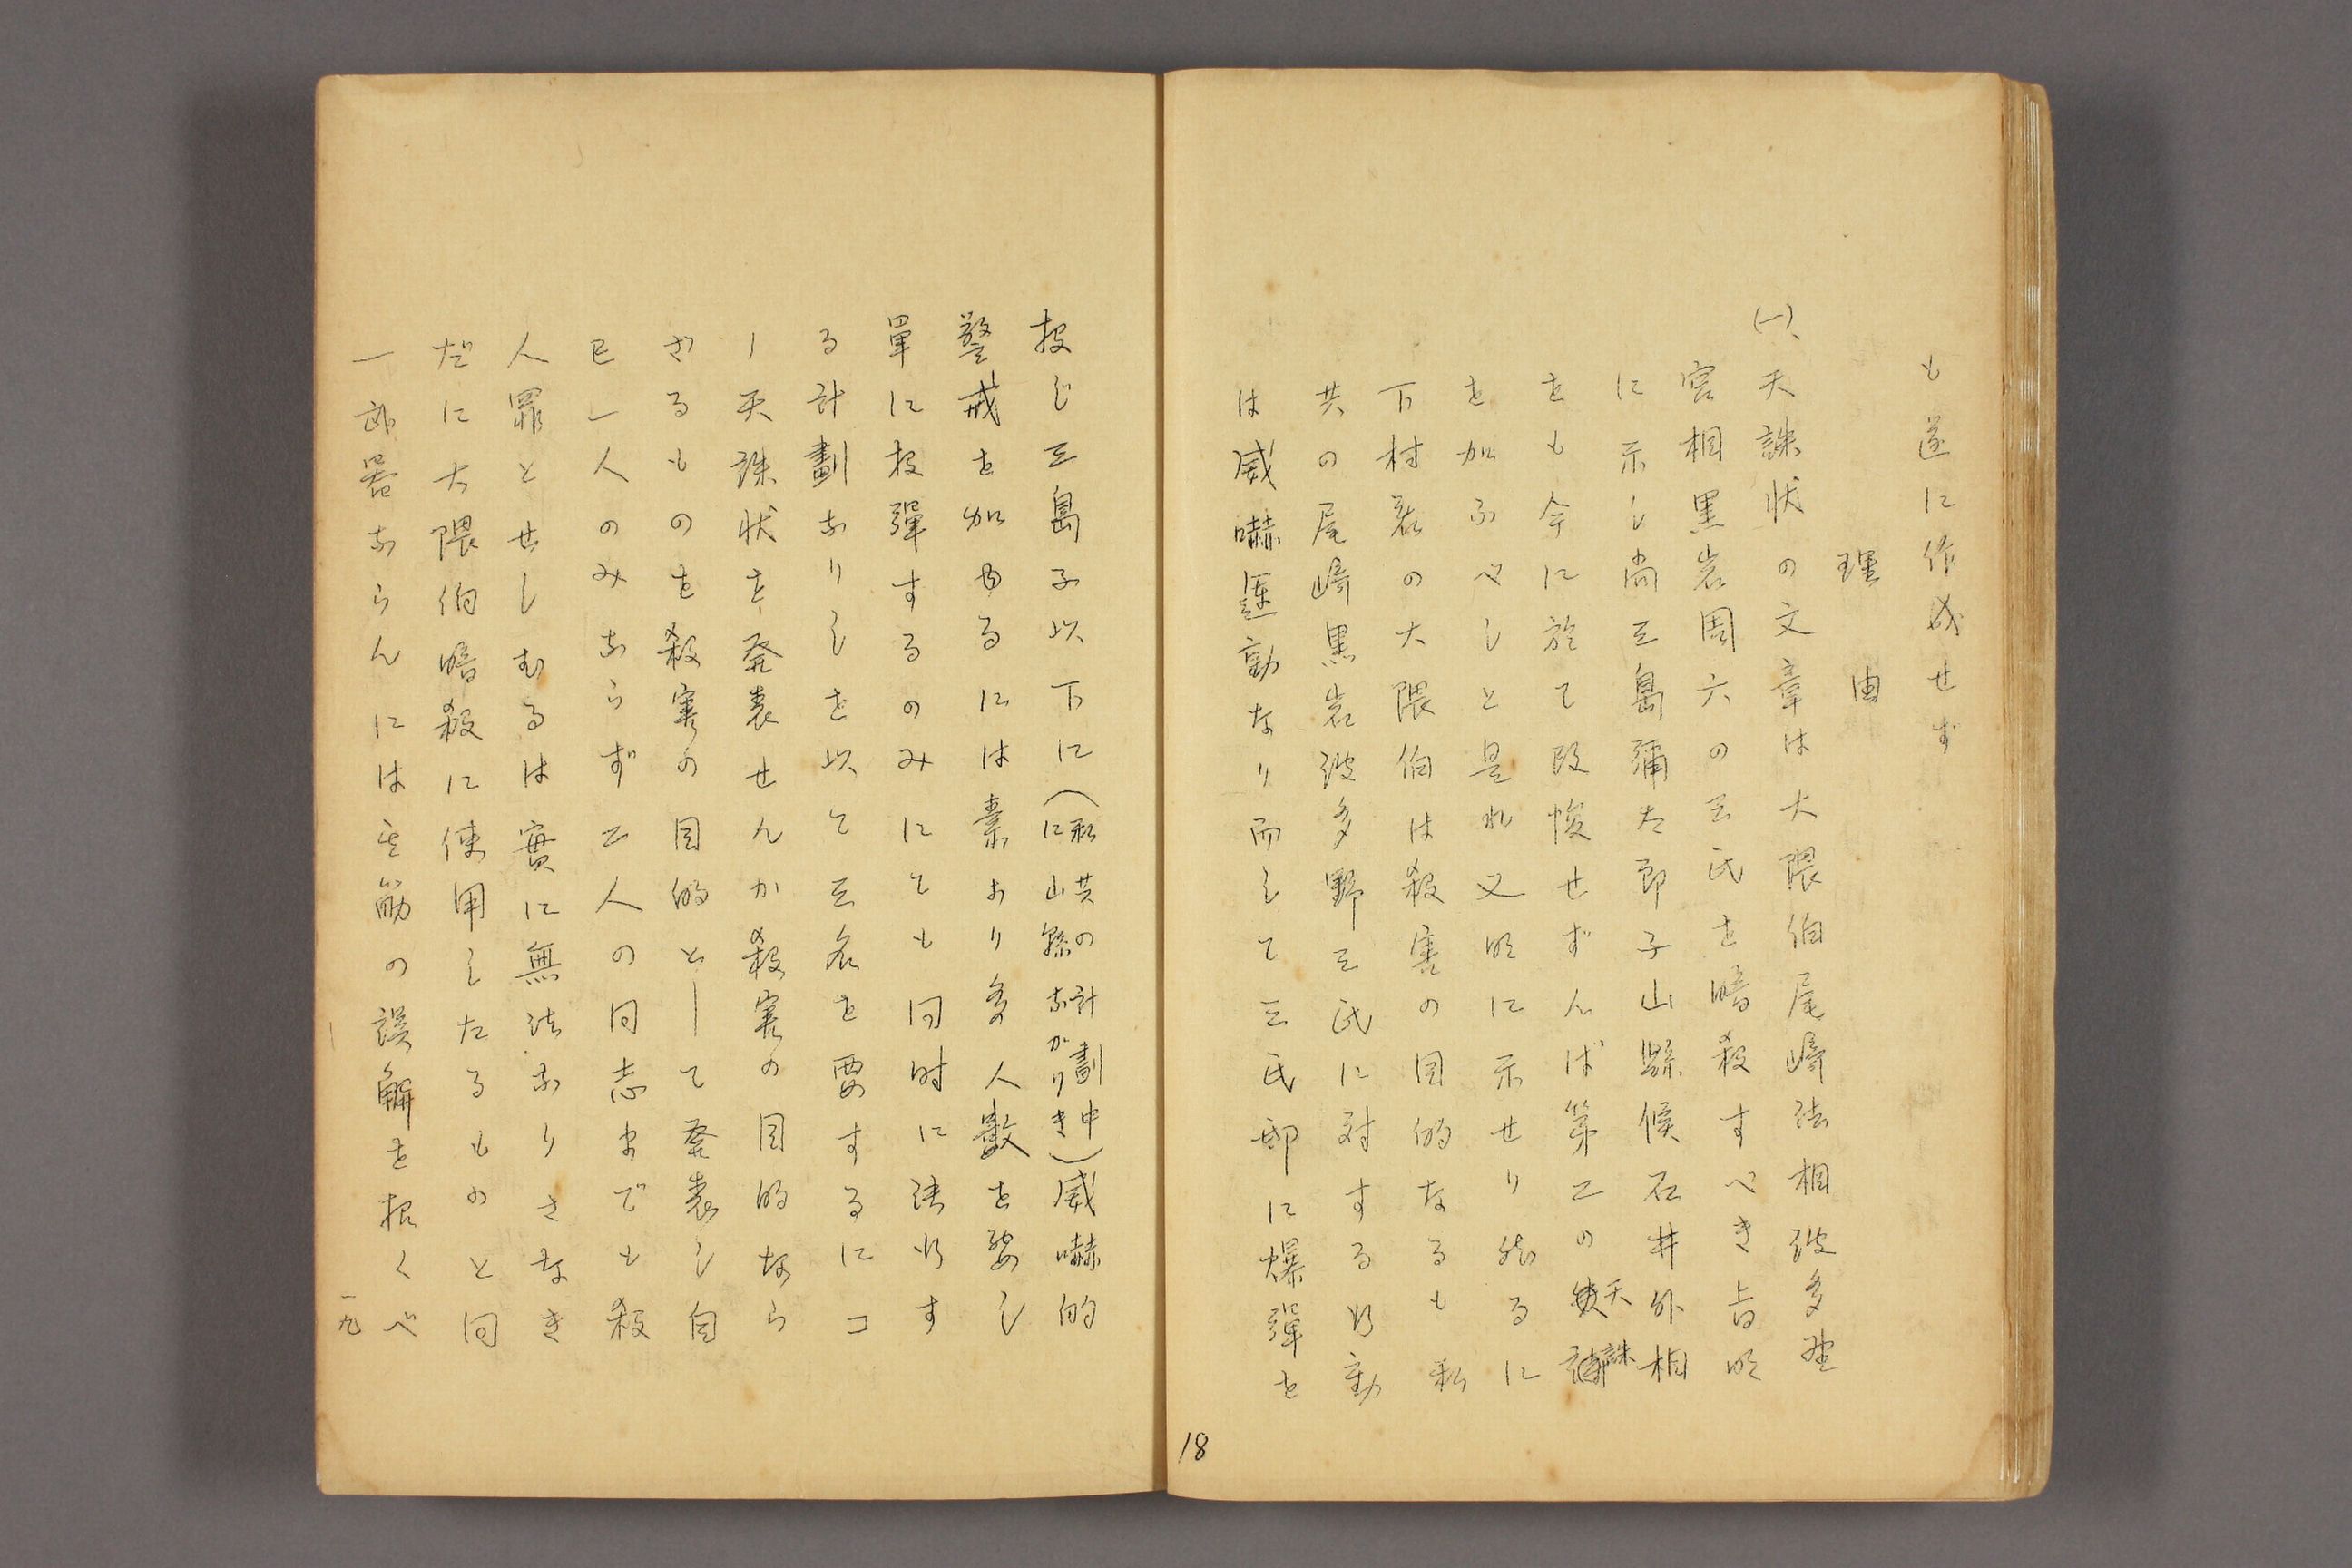 も遂に作成せず
理由
(一)、天誅状の文章は大隈伯尾崎法相波多野
宮相黒岩周六の三氏を暗殺すべき旨明
に示し尚三島彌太郎子山縣候石井外相
をも今に於て改悛せずんば第二の天誅
を加ふべしと是れ又明に示せり然るに
下村君の大隈伯は殺害の目的なるも私
共の尾崎黒岩波多野三氏に対する行動
は威嚇運動なり而して三氏邸に爆彈を
投じ三島子以下に(私共の計劃中
に山縣なかりき)威嚇的
警戒を加ゆるには素より多人數を要し
單に投彈するのみにても同時に決行す
る計劃なりしを以て三名を要するにコ
ー天誅状を発表せんか殺害の目的なら
ざるものを殺害の目的として発表し自
已一人のみならず二人の同志までも殺
人罪とせしむるは實に無法なりさなき
だに大隈伯暗殺に使用したるものと同
一武器ならんには其筋の誤解を招くべ
一九
18